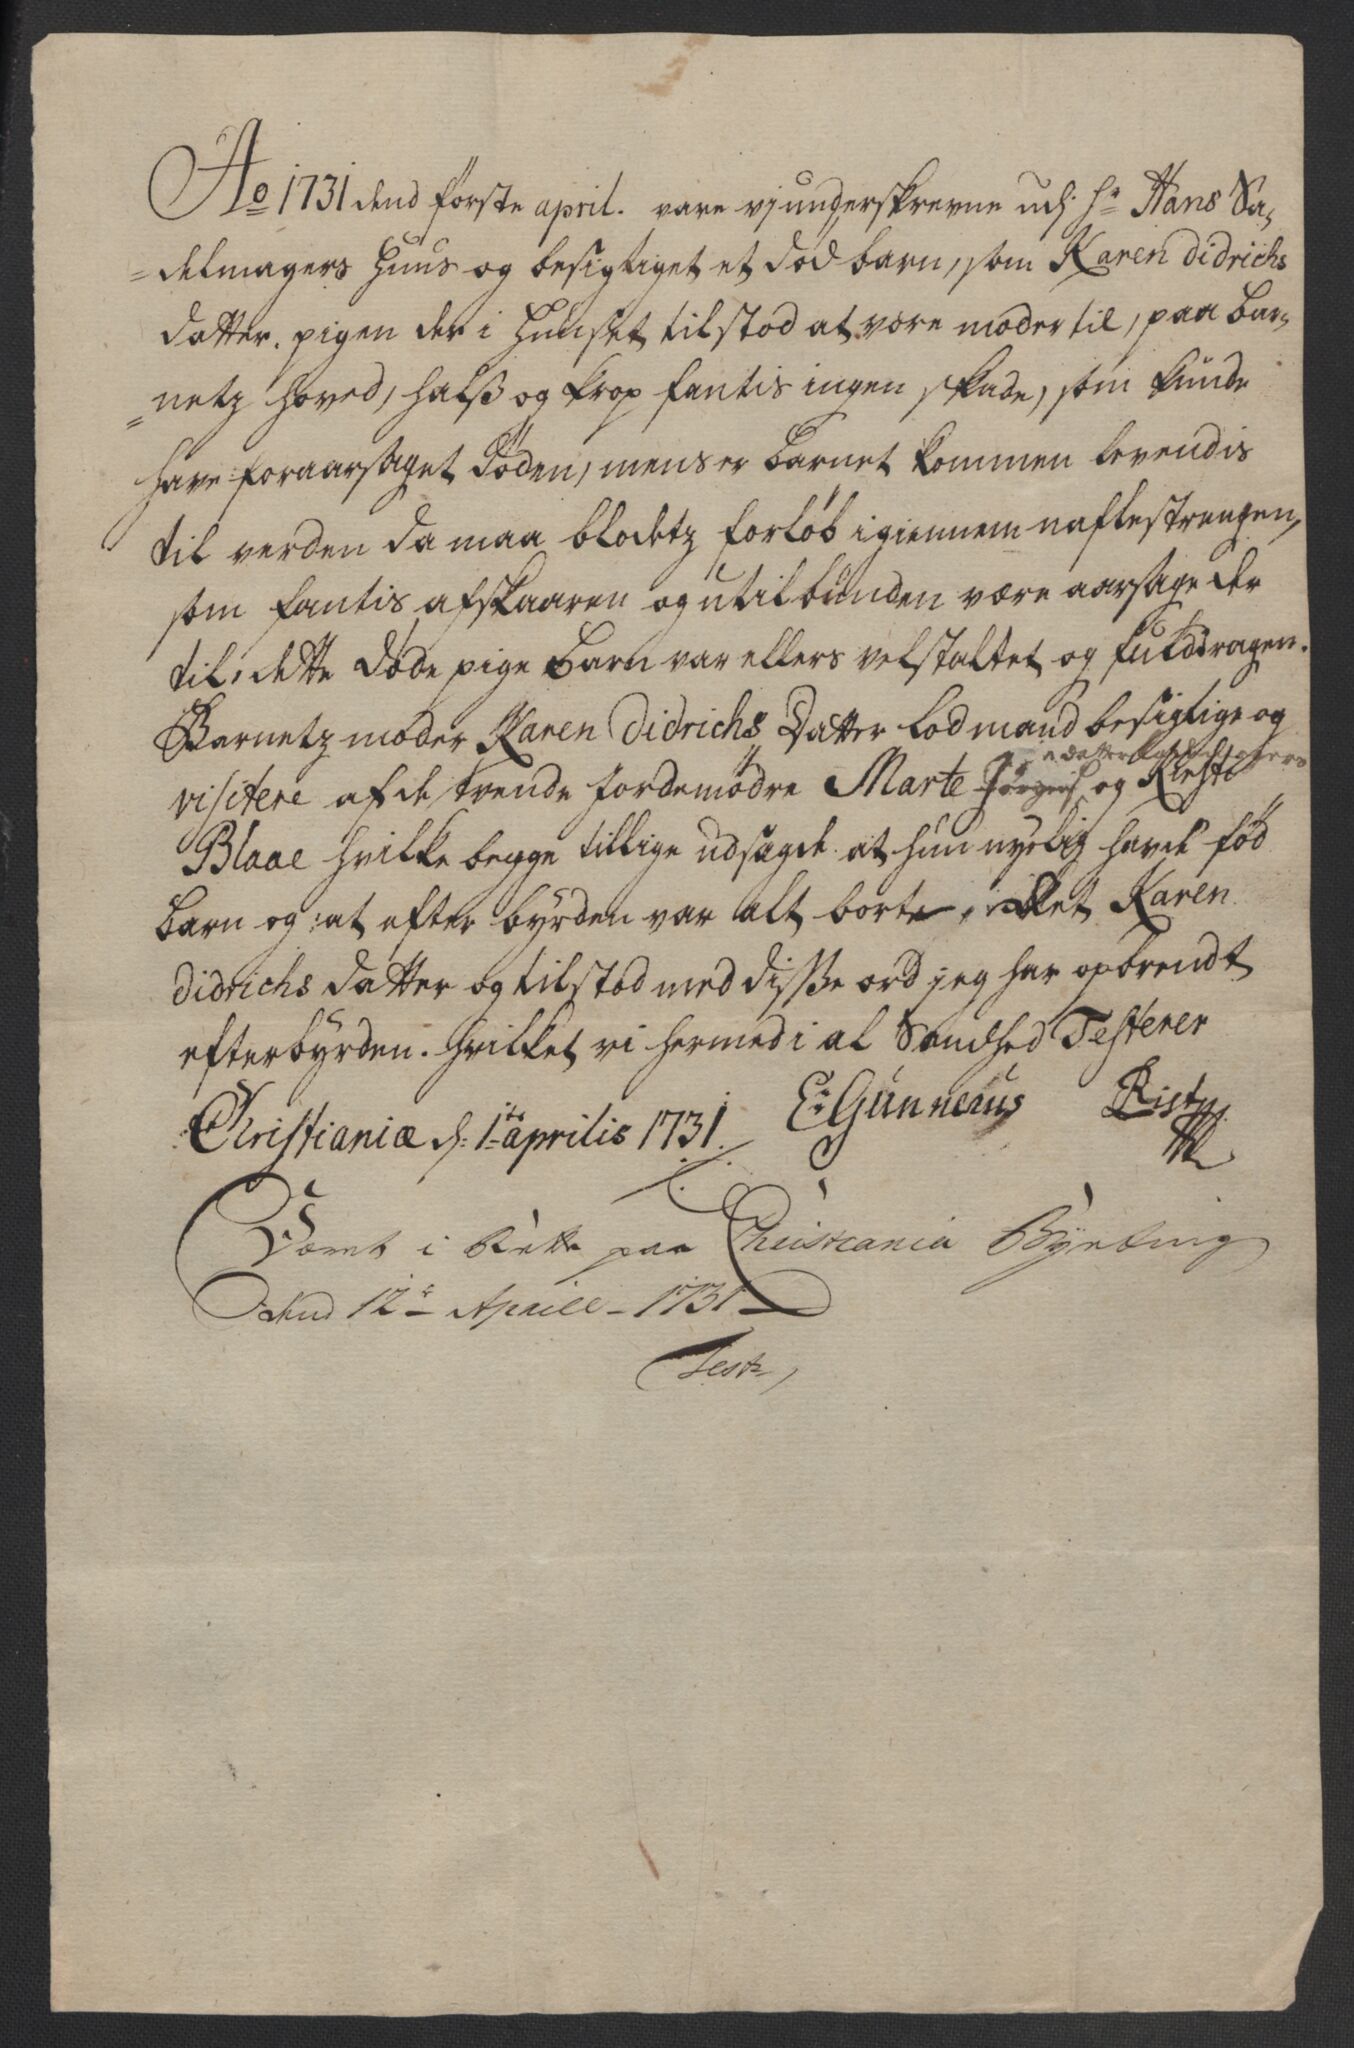 Ao 1731 dend første april. vare vj underskrevne udj hr Hans Sa,
=delmagers huus og besigtiget et død barn, som Karen Didrichs
datter, pigen der i huuset tilstod at være moder til, paa bar,,
=netz hoved, halß og krop fantis ingen skade, som kunde
have foraarsaget døden, mens er barnet kommen levendis
til verden da maa blodetz forløb igiennem naflestrengen,
som fantis afskaaren og utilbunden være aarsage der
til, dette døde pige barn var ellers velskaltet og fulddragen.
Barnetz moder Karen Didrichs Datter lod mand besigtige og
visitere af de tvende jordemødre Marte Jörgens og Kirsti
Blaae hvilke begge tillige udsagde at hun nyelig havde fød
barn og at efter byrden var alt borte, Karen
Didrichs datter og tilstod med disße ord jeg har opbrendt
efterbyrden. hvilket vi hermed i al Sandhed Testerer
Christianiæ d: 1te aprilis 1731. E: Gunnerus Rist
Været i Rette paa Christiania Byeting
dend 12te Aprill 1731
Test,